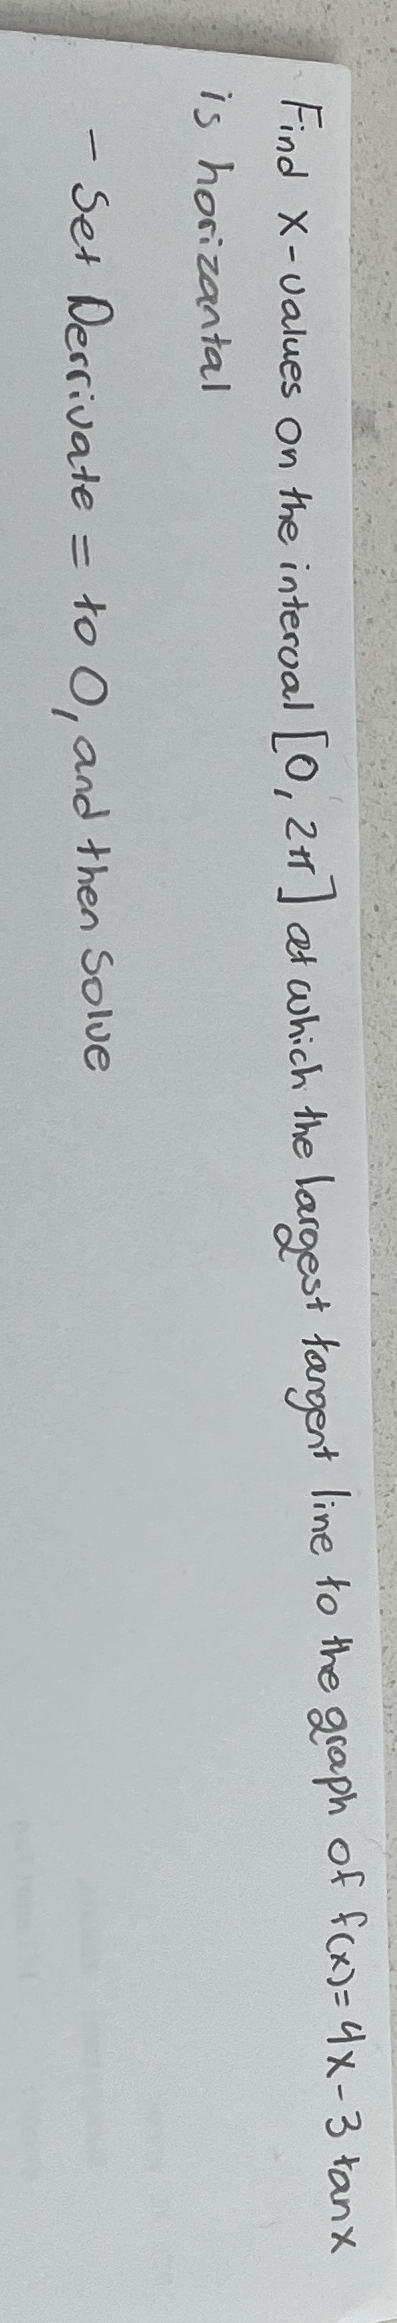 Find x-values on the interval [0, 2π] at which the largest tangent line to the graph of f(x)= 4x-3 tanx
is horizantal
- Set Derrivate = to 0, and then Solve